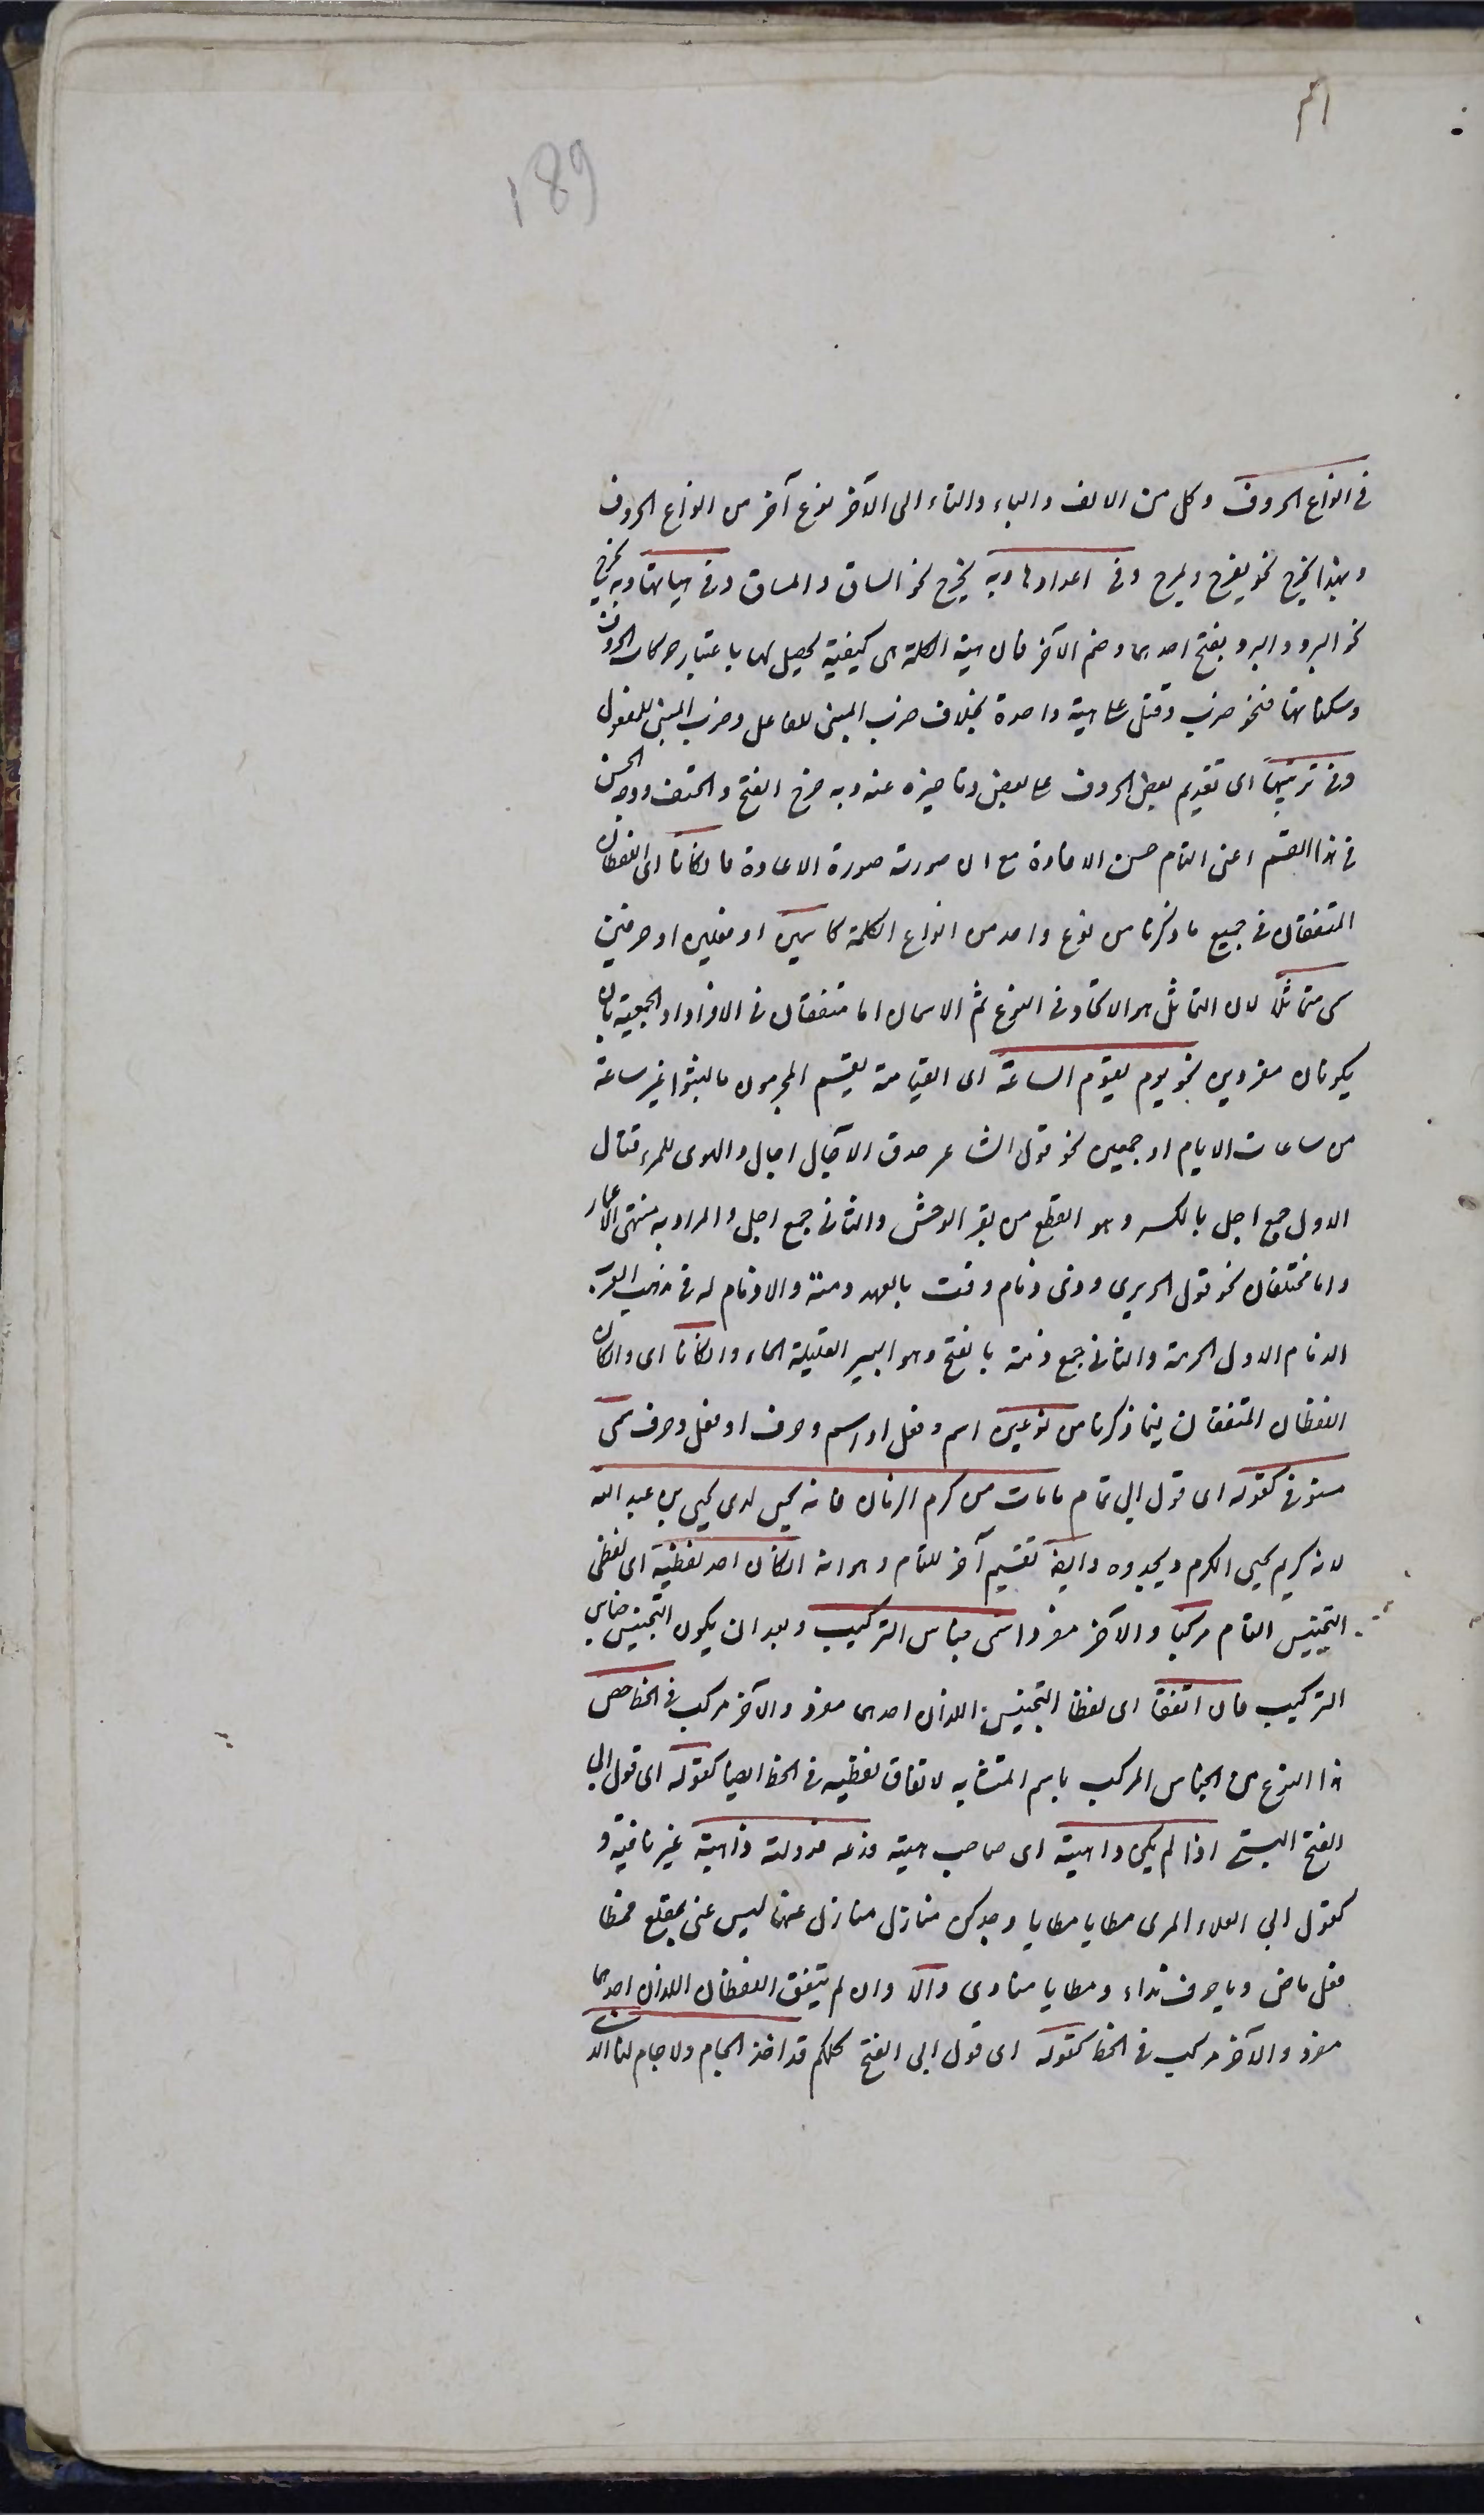 189
في انواع الحروف وكل من الالف والباء والتاء الى الآخر نوع آخر من انواع الحروف
وبهذا يخرج نحو يفرح ويمرح وفي اعدادها وبه يخرج نحو الساق والمساق وفي هيأتها وبه يخرج
نحو البرد والبرد بفتح احدهما وضم الآخر فان هيئة الكلمة هي كيفية يحصل لها باعتبار حركات الحروف
وسكناتها فنحو ضرب وقتل على هيئة واحدة بخلاف ضرب المبني للفاعل وضرب المبني للمفعول
وفي ترتيبها اى تقديم بعض الحروف على بعض وتاخيره عنه وبه خرج الفتح والحتف ووجه الحسن
في هذا القسم اعنى التام حسن الافادة مع ان صورته صورة الاعادة فان كانا اى اللفظان
المتفقان في جميع ما ذكرنا من نوع واحد من انواع الكلمة كاسمين او فعلين او حرفين
سمى متماثلا لان التماثل هو الاتحاد في النوع ثم الاسمان اما متفقان في الافراد او الجمعية بان
يكونان مفردين نحو يوم يقوم الساعة اى القيامة يقسم المجرمون ما لبثوا غير ساعة
من ساعات الايام او جمعين نحو قول الشاعر حدق الآجال اجال والهوى للمرء قتال
الاول جمع اجل بالكسر وهو القطع من بقر الوحش والثاني جمع اجل والمراد به منتهى الاعمار
واما مختلفان نحو قول الحريرى وذى ذمام وفت بالعهد ذمته ولا ذمام له في مذهب العرب
الذمام الاول الحرمة والثاني جمع ذمة بالفتح وهو البير القليلة الماء وان كانا اى وان كان
اللفظان المتفقان فيما ذكرنا من نوعين اسم وفعل او اسم وحرف او فعل وحرف سمى
مستوفى كقوله اى قول ابي تمام ما مات من كرم الزمان فانه يحيى لدى يحيى بن عبد الله
لانه كريم يحيى الكرم ويجدده وايضا تقسيم آخر للتام وهو انه ان كان احد لفظيه اى لفظي
التجنيس التام مركبا والآخر مفردا سمى جناس التركيب وبعد ان يكون التجنيس جناس
التركيب فان اتفقا اى لفظا التجنيس اللذان احدهما مفرد والآخر مركب في الخط خص
هذا النوع من الجناس المركب باسم المتشابه لاتفاق لفظيه في الخط ايضا كقوله اى قول ابي
الفتح البستي اذا لم يكن ذا هبة اى صاحب هبة فدعه فدولته ذاهبة غير باقية و
كقول ابي العلاء المعرى مطا يا مطايا وجدكن منازل منازل عنها ليس عنى بمقلع فمطا
فعل ماض ويا حرف نداء ومطايا منادى والا وان لم يتفق اللفظان اللذان احدهما
مفرد والآخر مركب في الخط كقوله اى قول ابي الفتح كلكم قد اخذ الجام ولا جام لنا